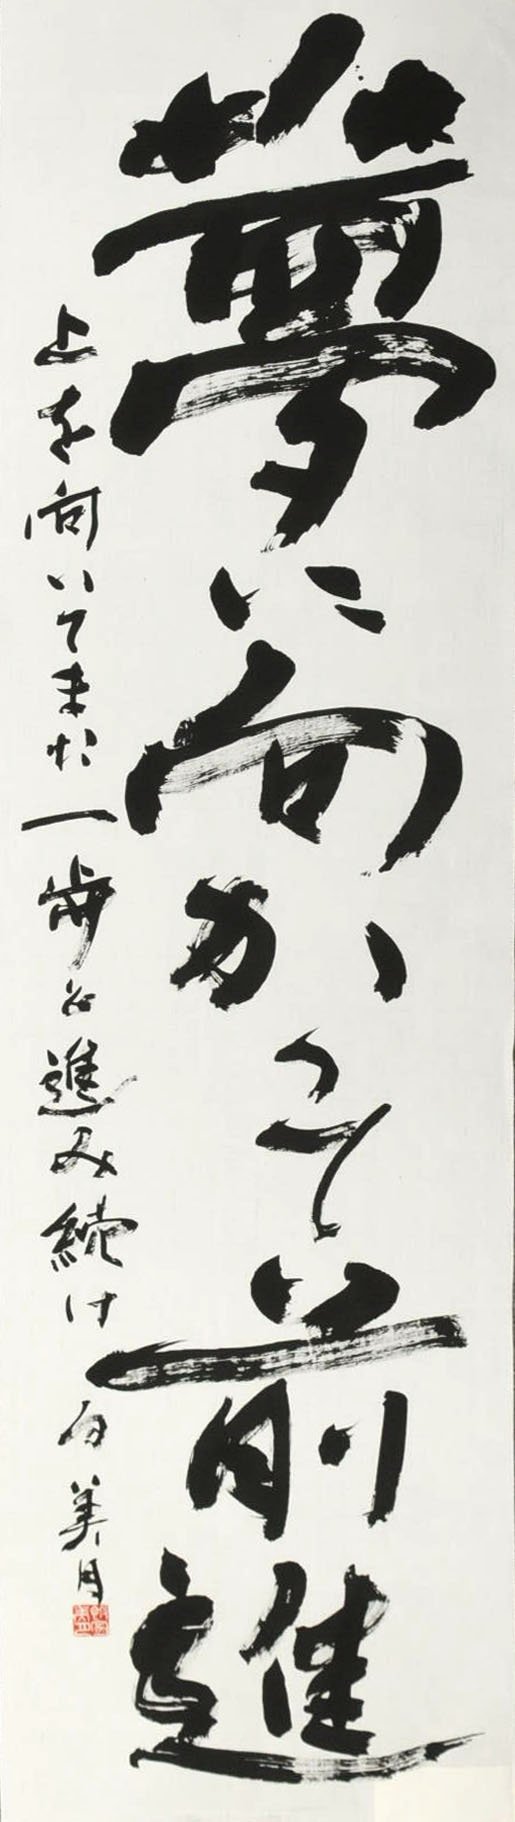 夢に向かって前進
上を向いてまた一歩進み続け
美月